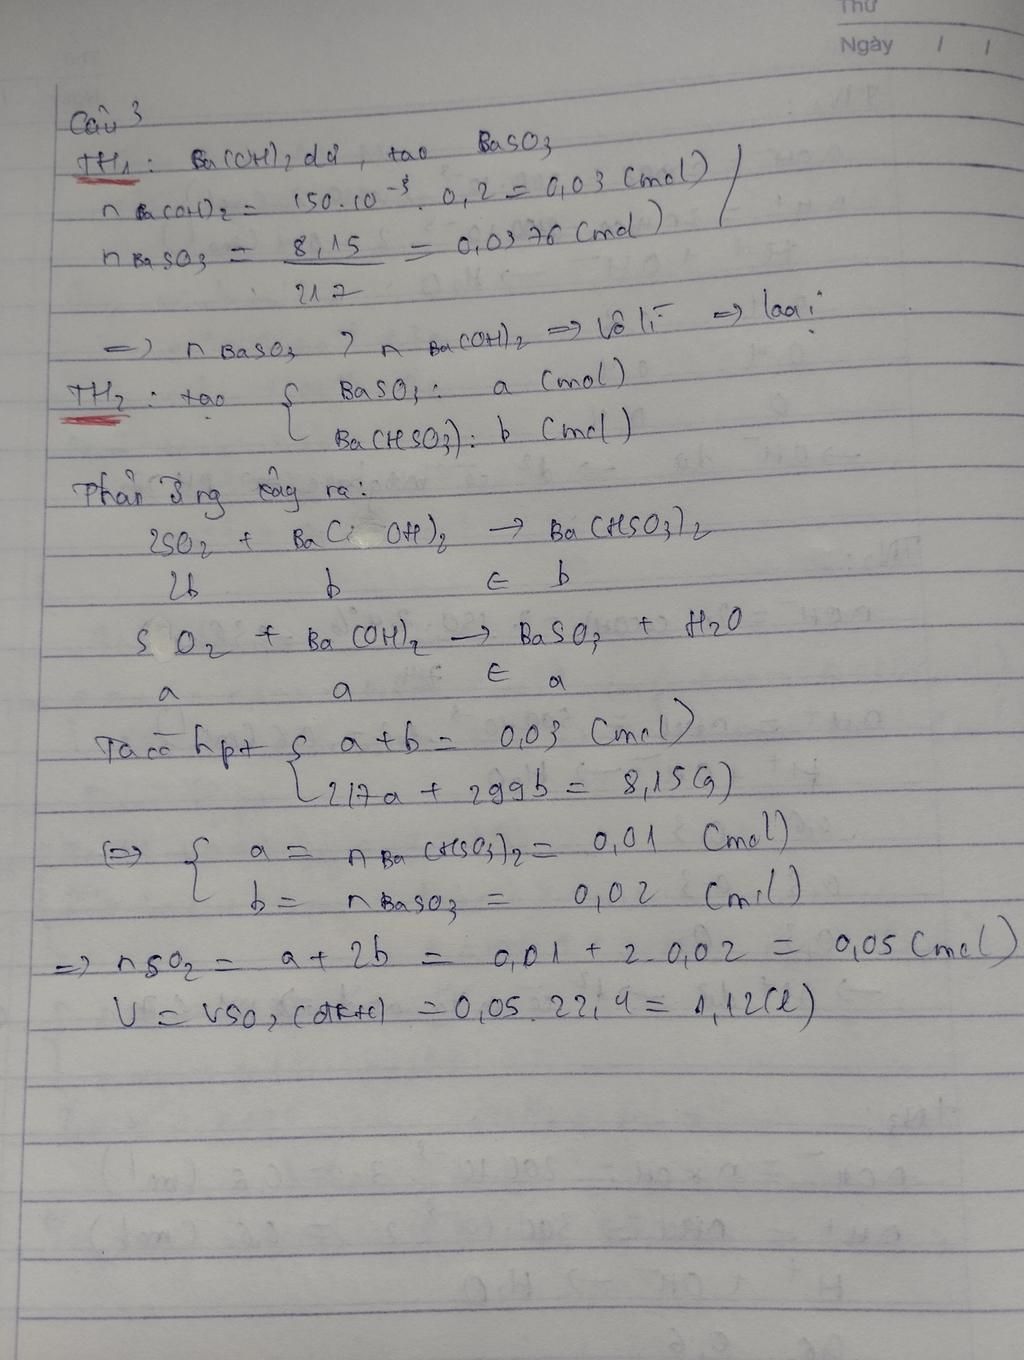 Thứ
Ngày / /
Câu 3
TH1: Ba(OH)2 dư, tạo BaSO3
n Ba(OH)2 = 150.10^-3. 0,2 = 0,03 (mol)
n BaSO3 = 8,15 / 217 = 0,0376 (mol)
=> n BaSO3 > n Ba(OH)2 => Vô lí => loại
TH2: tạo { BaSO3: a (mol)
Ba(HSO3): b (mol)
Phản ứng xảy ra:
2SO2 + Ba(OH)2 → Ba(HSO3)2
2b b ← b
SO2 + Ba(OH)2 → BaSO3 + H2O
a a ← a
Ta có hpt { a+b = 0,03 (mol)
217a + 299b = 8,15(g)
<=> { a = n Ba(HSO3)2 = 0,01 (mol)
b = n BaSO3 = 0,02 (mol)
=> n SO2 = a + 2b = 0,01 + 2.0,02 = 0,05 (mol)
V = VSO2 (đktc) = 0,05.22,4 = 1,12(l)